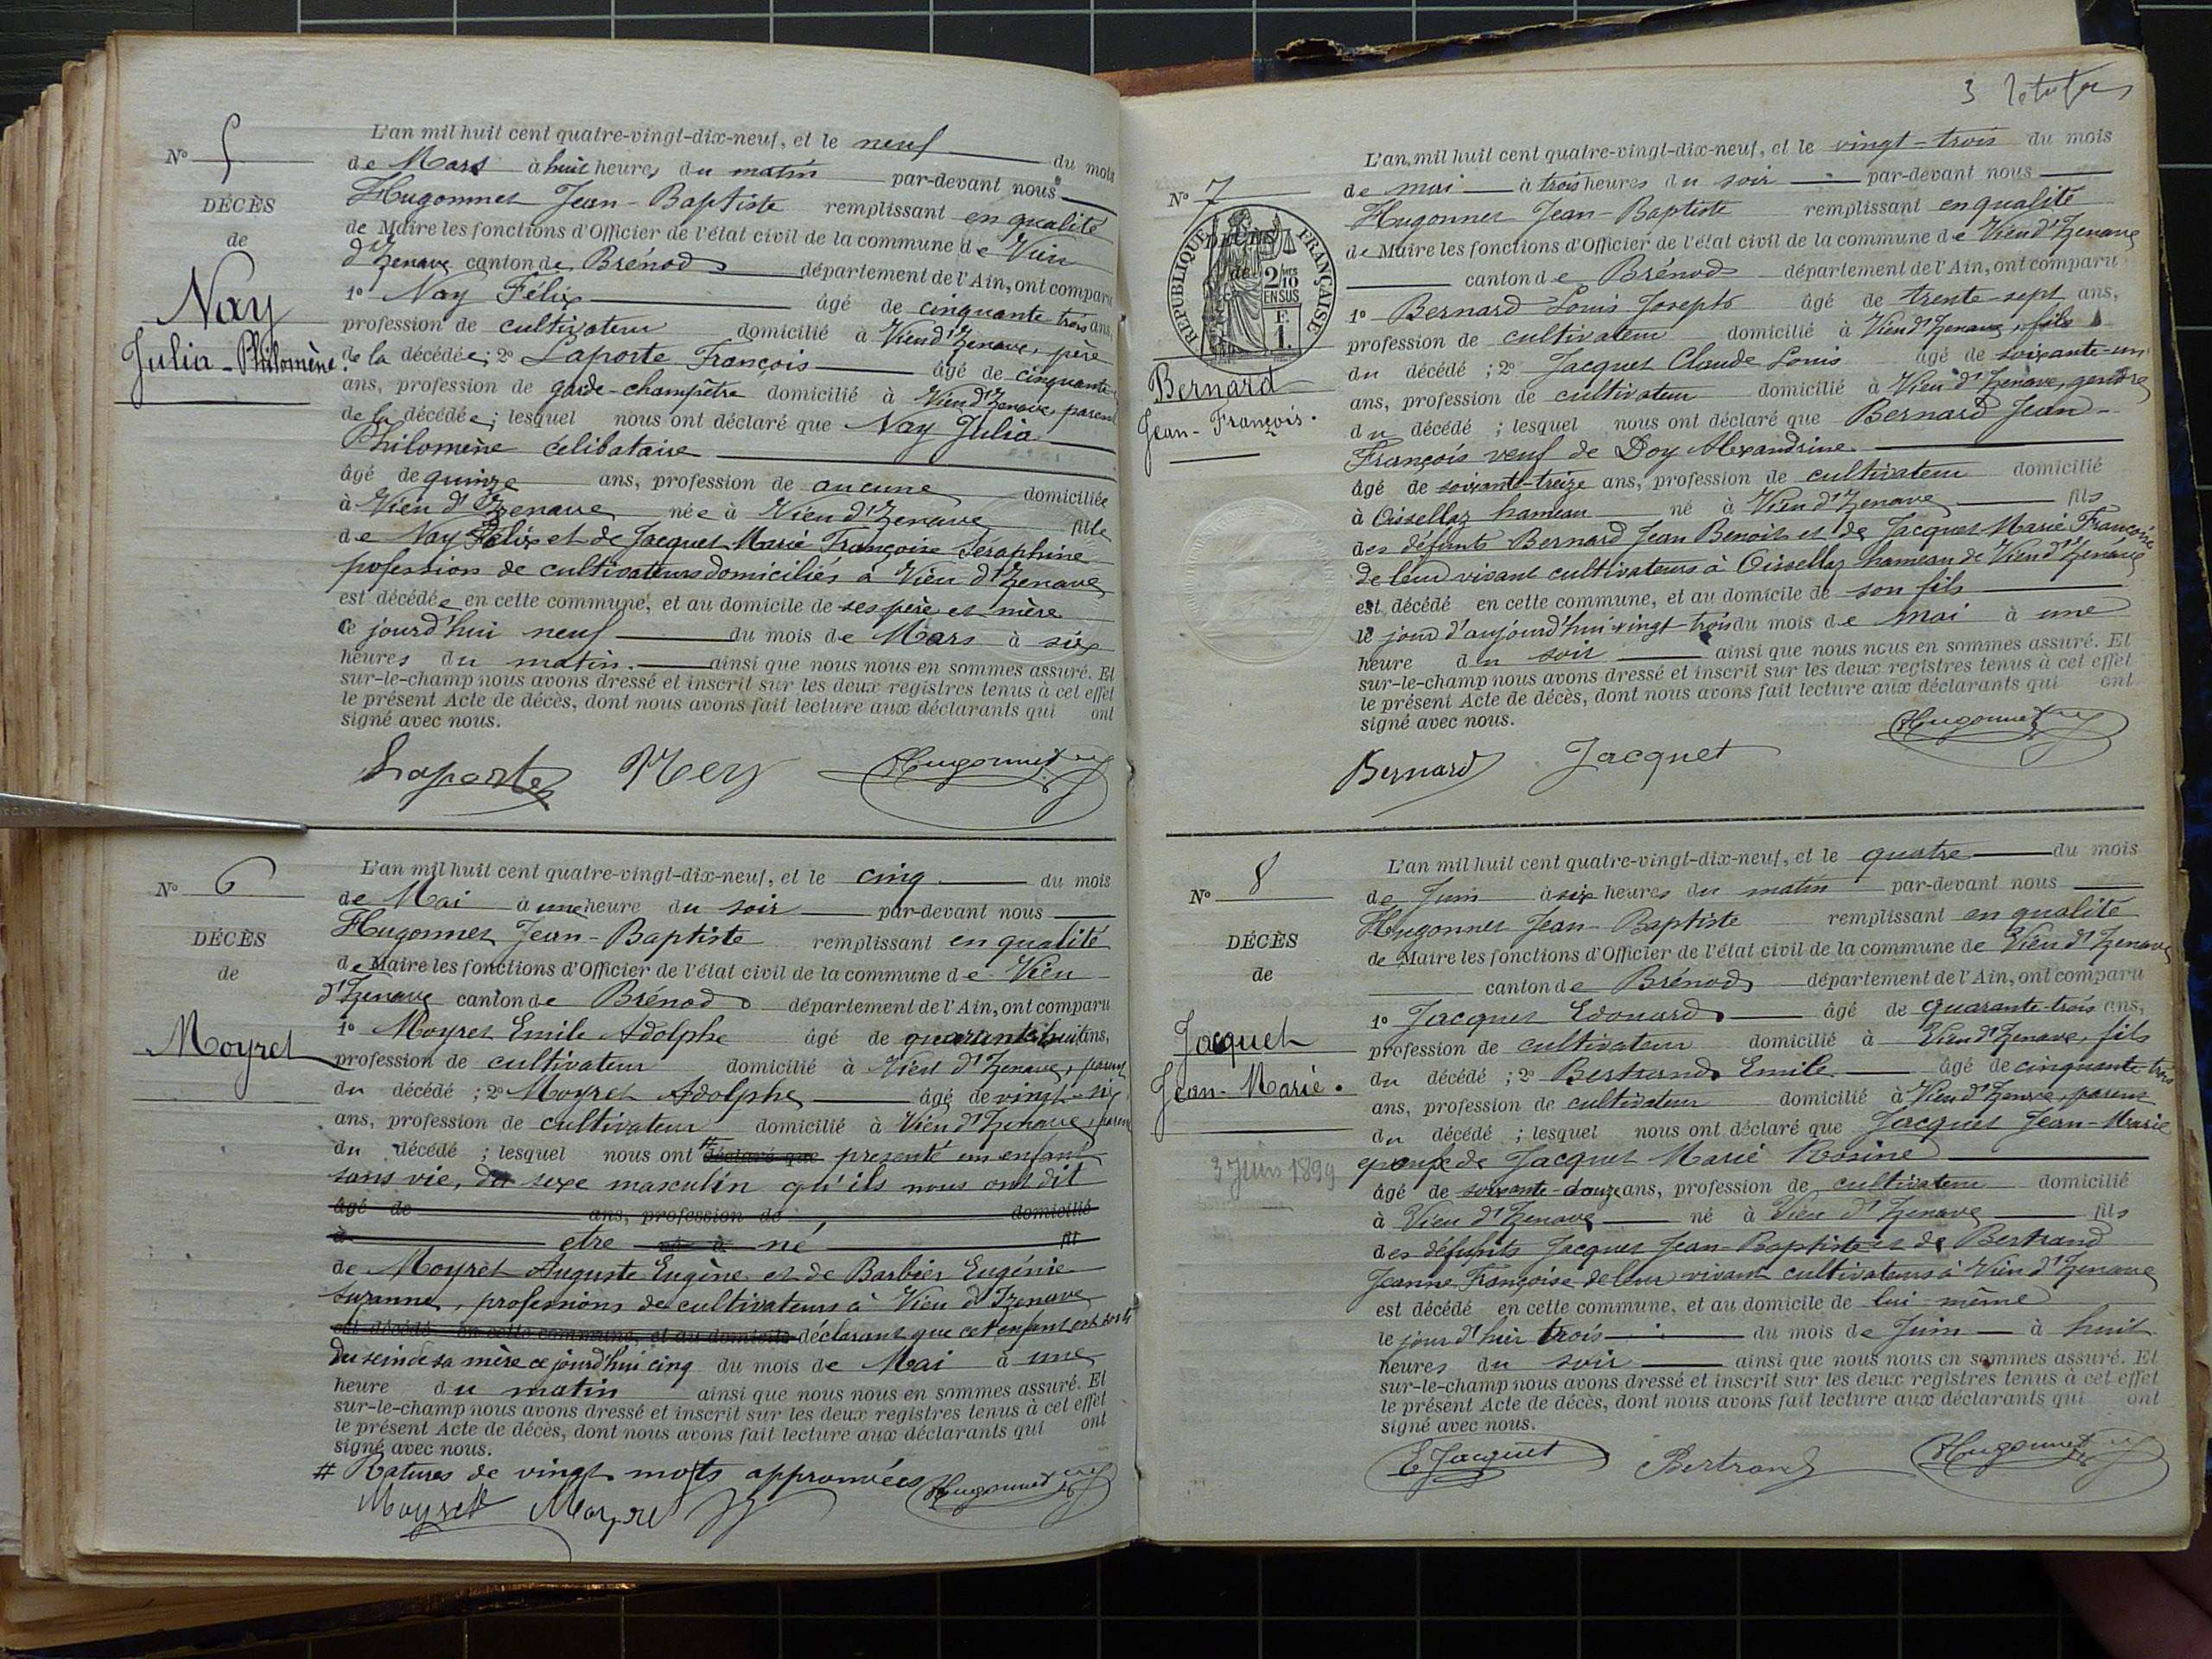 N° 5
DÉCÈS
de
Nay
Julia-Philomène.
L'an mil huit cent quatre-vingt-dix-neuf, et le neuf du mois
de Mars à huit heures du matin par-devant nous
Hugonnet Jean-Baptiste remplissant en qualité
de Maire les fonctions d'Officier de l'état civil de la commune de Vieu
d'Izenave canton de Brénod département de l'Ain, ont comparu
1° Nay Félix âgé de cinquante-trois ans,
profession de cultivateur domicilié à Vieu d'Izenave, père
de la décédée; 2° Laporte François âgé de cinquante
ans, profession de garde-champêtre domicilié à Vieu d'Izenave, parent
de la décédée; lesquel nous ont déclaré que Nay Julia
Philomène célibataire
âgé de quinze ans, profession de aucune domiciliée
à Vieu d'Izenave née à Vieu d'Izenave fille
de Nay Félix et de Jacquet Marie Françoise Séraphine
profession de cultivateurs domiciliés à Vieu d'Izenave
est décédée en cette commune, et au domicile de ses père et mère
ce jourd'hui neuf du mois de Mars à six
heures du matin. ainsi que nous nous en sommes assuré. Et
sur-le-champ nous avons dressé et inscrit sur les deux registres tenus à cet effet
le présent Acte de décès, dont nous avons fait lecture aux déclarants qui ont
signé avec nous.
Laporte Hugonnet
N° 6
DÉCÈS
de
Moyret
L'an mil huit cent quatre-vingt-dix-neuf, et le cinq du mois
de Mai à une heure du soir par-devant nous
Hugonnet Jean-Baptiste remplissant en qualité
de Maire les fonctions d'Officier de l'état civil de la commune de Vieu
d'Izenave canton de Brénod département de l'Ain, ont comparu
1° Moyret Emile Adolphe âgé de quarante-huit ans,
profession de cultivateur domicilié à Vieu d'Izenave, parent
du décédé; 2° Moyret Adolphe âgé de vingt-six
ans, profession de cultivateur domicilié à Vieu d'Izenave, parent
du décédé; lesquel nous ont # déclaré que presenté un enfant
sans vie, du sexe masculin qu'ils nous ont dit
âgé de ans, profession de domicilié
à etre né à né fil
de Moyret Auguste Eugène et de Barbier Eugénie
Suzanne, professions de cultivateurs à Vieu d'Izenave
est décédé en cette commune, et au domicile déclarant que cet enfant est sorti
du sein de sa mère ce jourd'hui cinq du mois de Mai à une
heure du matin ainsi que nous nous en sommes assuré. Et
sur-le-champ nous avons dressé et inscrit sur les deux registres tenus à cet effet
le présent Acte de décès, dont nous avons fait lecture aux déclarants qui ont
signé avec nous.
# Ratures de vingt mots approuvées Hugonnet
Moyret Moyret
3
N° 7
DÉCÈS
de
RÉPUBLIQUE FRANÇAISE
2/10 EN SUS
F. 1.
Bernard
Jean-François.
L'an mil huit cent quatre-vingt-dix-neuf, et le vingt-trois du mois
de mai à trois heures du soir par-devant nous
Hugonnet Jean-Baptiste remplissant en qualité
de Maire les fonctions d'Officier de l'état civil de la commune de Vieu d'Izenave
canton de Brénod département de l'Ain, ont comparu
1° Bernard Louis Joseph âgé de trente-sept ans,
profession de cultivateur domicilié à Vieu d'Izenave, fils
du décédé; 2° Jacquet Claude Louis âgé de soixante-un
ans, profession de cultivateur domicilié à Vieu d'Izenave, gendre
du décédé; lesquel nous ont déclaré que Bernard Jean-
François veuf de Doy Alexandrine
âgé de soixante-treize ans, profession de cultivateur domicilié
à Oissellaz hameau né à Vieu d'Izenave fils
des défunts Bernard Jean Benoit et de Jacquet Marie Françoise
de leur vivant cultivateurs à Oissellaz hameau de Vieu d'Izenave
est décédé en cette commune, et au domicile de son fils
le jour d'aujourd'hui vingt-trois du mois de mai à une
heure du soir ainsi que nous nous en sommes assuré. Et
sur-le-champ nous avons dressé et inscrit sur les deux registres tenus à cet effet
le présent Acte de décès, dont nous avons fait lecture aux déclarants qui ont
signé avec nous.
Bernard Jacquet Hugonnet
N° 8
DÉCÈS
de
Jacquet
Jean-Marie.
3 Juin 1899
L'an mil huit cent quatre-vingt-dix-neuf, et le quatre du mois
de Juin à six heures du matin par-devant nous
Hugonnet Jean-Baptiste remplissant en qualité
de Maire les fonctions d'Officier de l'état civil de la commune de Vieu d'Izenave
canton de Brénod département de l'Ain, ont comparu
1° Jacquet Edouard âgé de quarante-trois ans,
profession de cultivateur domicilié à Vieu d'Izenave, fils
du décédé; 2° Bertrand Emile âgé de cinquante-trois
ans, profession de cultivateur domicilié à Vieu d'Izenave, parent
du décédé; lesquel nous ont déclaré que Jacquet Jean-Marie
epoux de Jacquet Marie Rosine
âgé de soixante-douze ans, profession de cultivateur domicilié
à Vieu d'Izenave né à Vieu d'Izenave fils
des défunts Jacquet Jean-Baptiste et de Bertrand
Jeanne Françoise de leur vivant cultivateurs à Vieu d'Izenave
est décédé en cette commune, et au domicile de lui-même
le jour d'hier trois du mois de Juin à huit
heures du soir ainsi que nous nous en sommes assuré. Et
sur-le-champ nous avons dressé et inscrit sur les deux registres tenus à cet effet
le présent Acte de décès, dont nous avons fait lecture aux déclarants qui ont
signé avec nous.
E Jacquet Bertrand Hugonnet